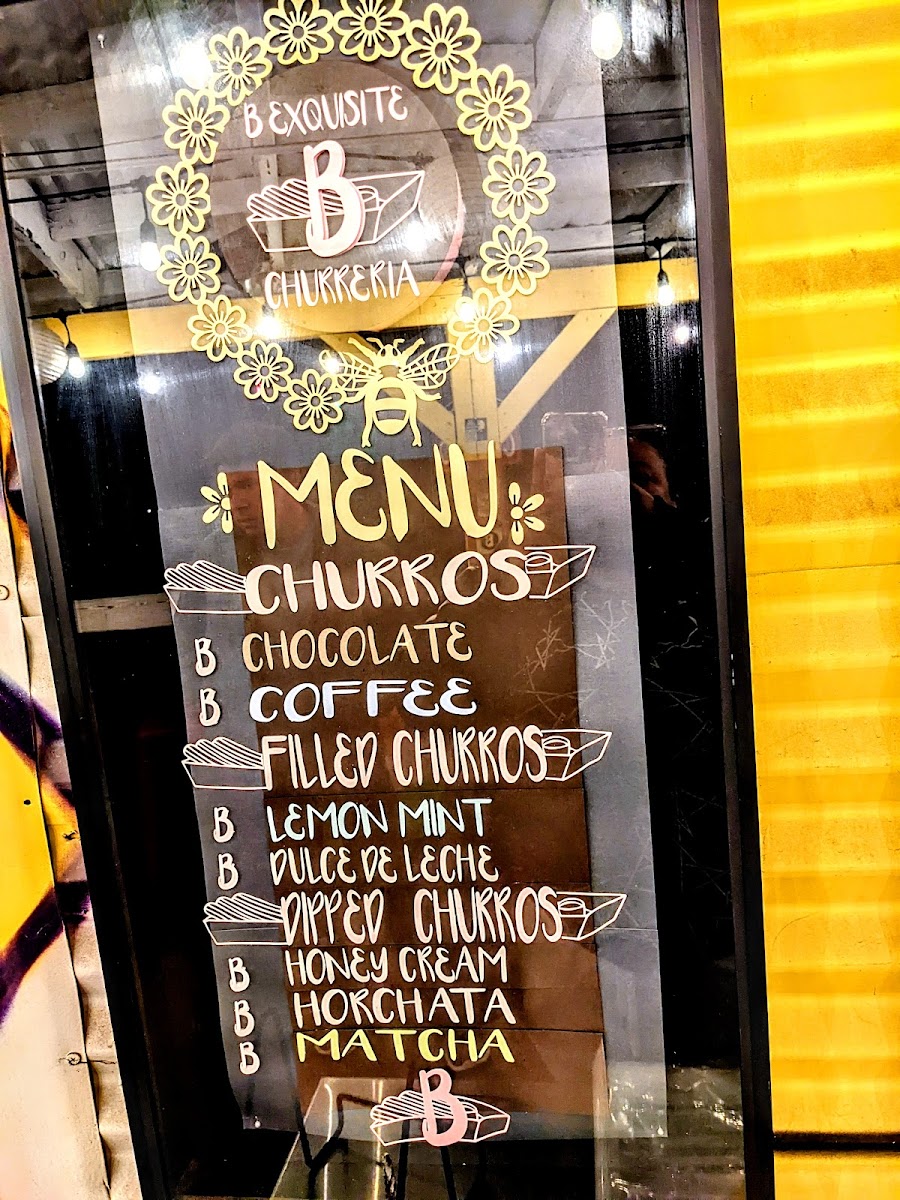 B EXQUISITE
B
CHURRERIA
MENU
CHURROS
B CHOCOLATE
B COFFEE
FILLED CHURROS
B LEMON MINT
B DULCE DE LECHE
DIPPED CHURROS
B HONEY CREAM
B HORCHATA
B MATCHA
B